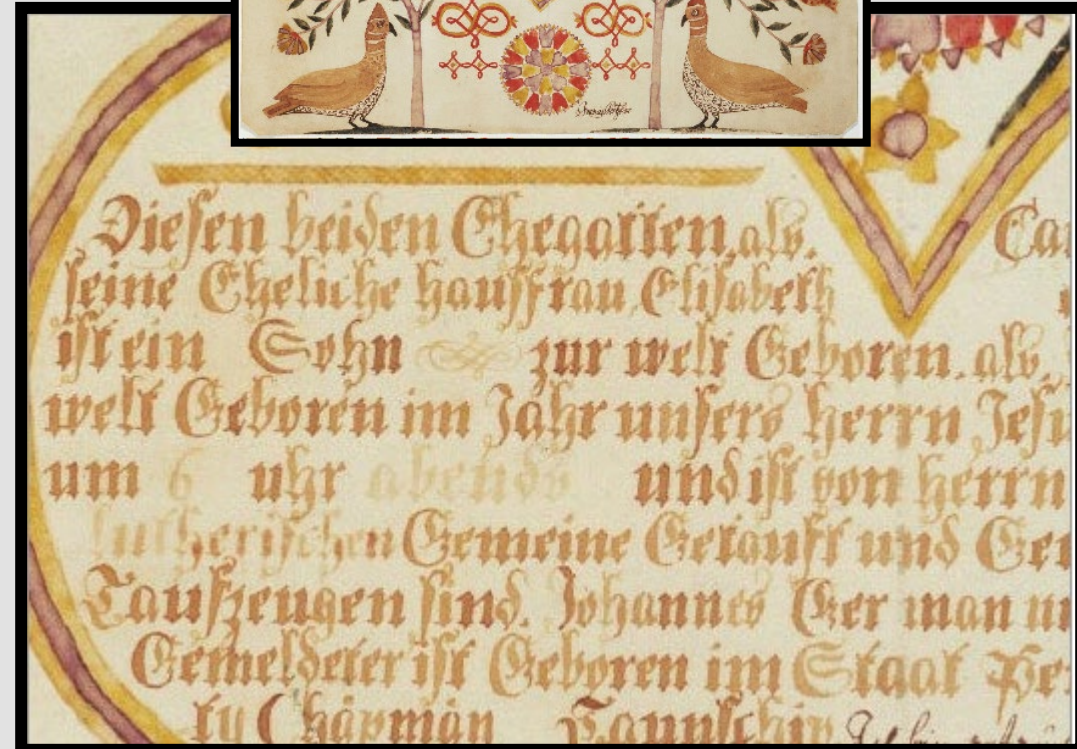 Diesen beiden Ehegatten, als.
Ca
seine Eheliche haussfrau, Elisabeth
ist ein Sohn zur welt Geboren. als
welt Geboren im Jahr unsers herrn Jesu
um 6 uhr abends und ist von herrn
lutherischen Gemeine Getauft und Gen
Taufzeugen sind. Johannes German un
Gemeldeter ist Geboren im Staat Pe
ty Chapman Taunschip